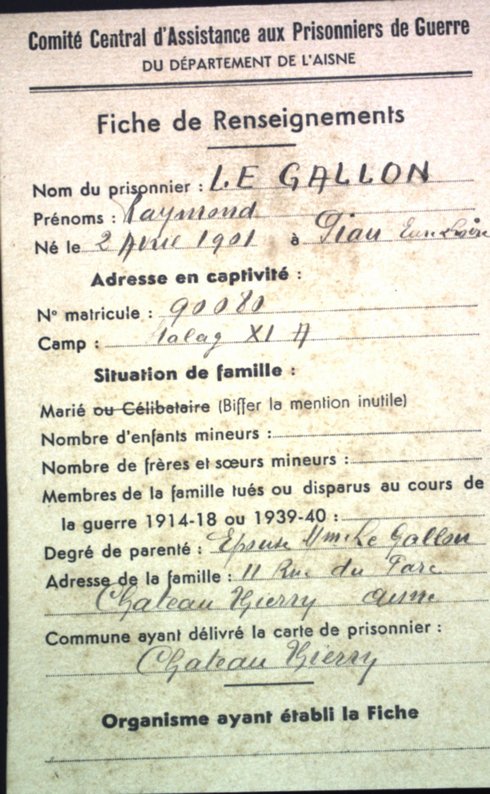 Comité Central d'Assistance aux Prisonniers de Guerre
DU DÉPARTEMENT DE L'AISNE
Fiche de Renseignements
Nom du prisonnier : LE GALLON
Prénoms : Raymond
Né le 2 Avril 1901 à Piau Eure Loire
Adresse en captivité :
Nº matricule : 90080
Camp : Stalag XI A
Situation de famille :
Marié ou Célibataire (Biffer la mention inutile)
Nombre d'enfants mineurs :
Nombre de frères et sœurs mineurs :
Membres de la famille tués ou disparus au cours de
la guerre 1914-18 ou 1939-40 :
Degré de parenté : Epouse Mme Le Gallon
Adresse de la famille : 11 Rue du Parc
Chateau Thierry Aisne
Commune ayant délivré la carte de prisonnier :
Chateau Thierry
Organisme ayant établi la Fiche